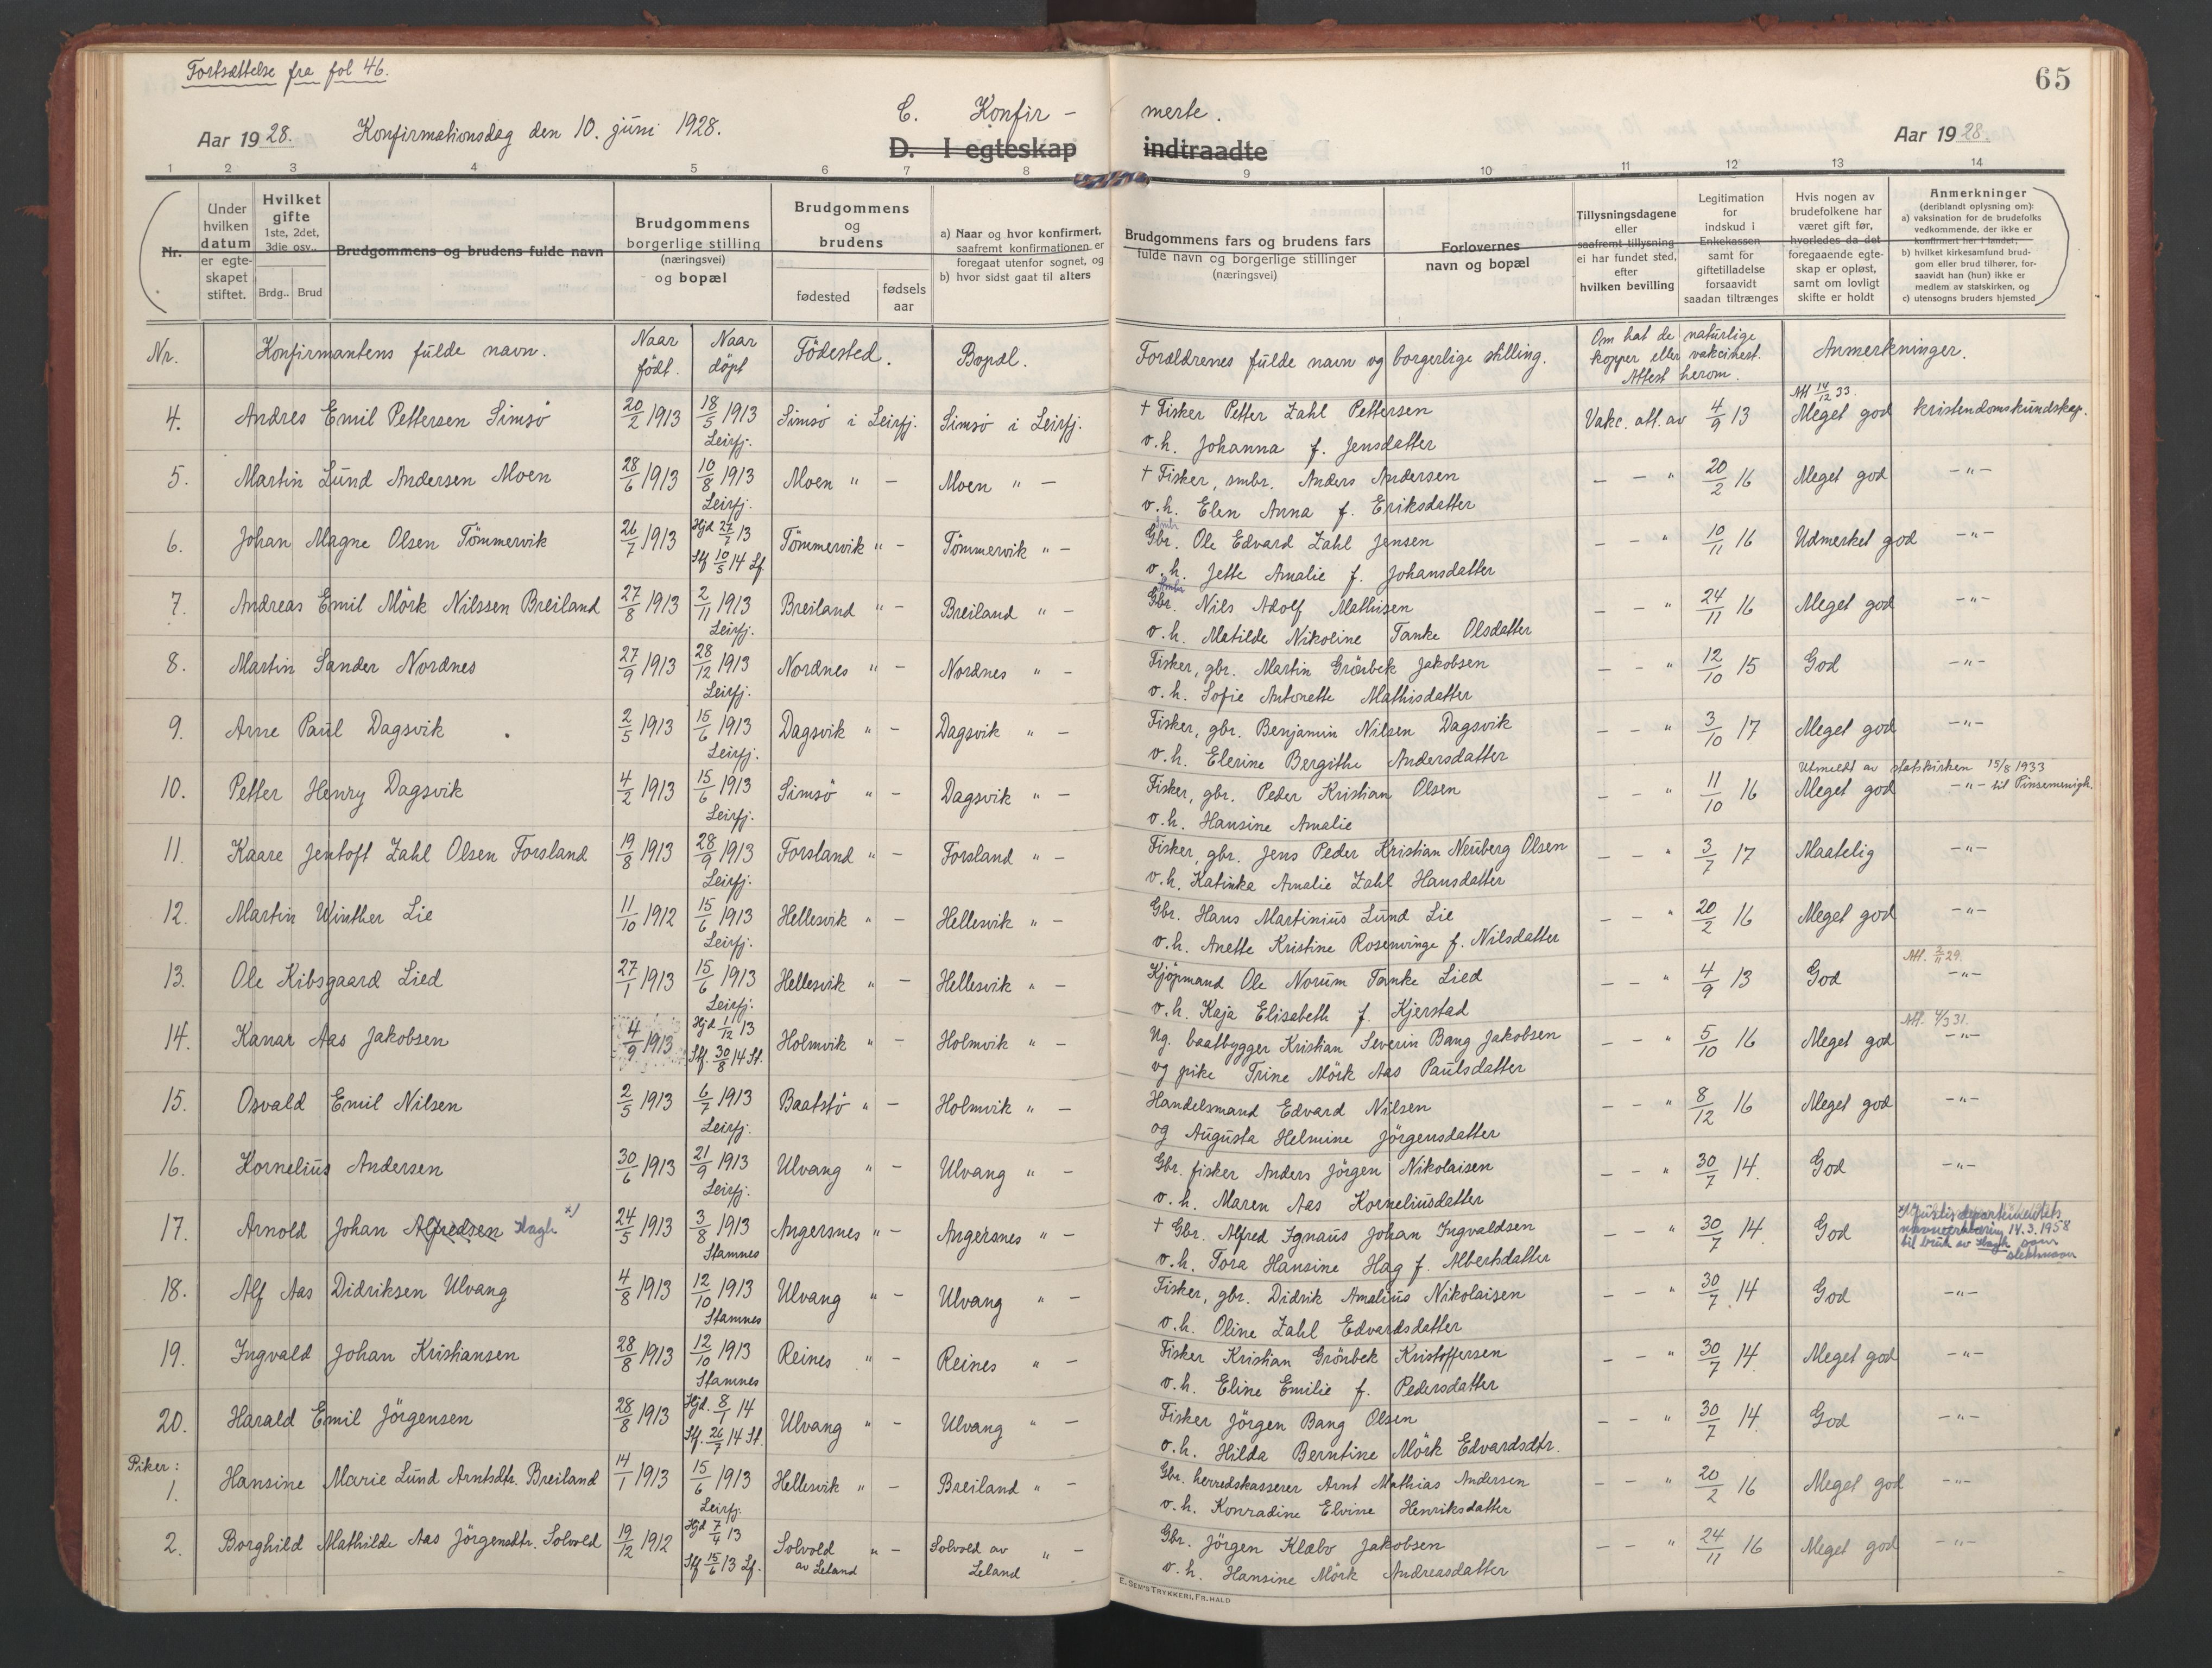 Fortsættelse fra fol 46.
65
C. Konfir - merte.
Aar 1928. Konfirmationsdag den 10. juni 1928.
D. I egteskap indtraadte
Aar 1928.
1 2 3 4 5 6 7 8 9 10 11 12 13 14
Nr.
Under hvilken datum er egteskapet stiftet.
Hvilket gifte 1ste, 2det, 3die osv..
Brdg.. Brud
Brudgommens og brudens fulde navn
Brudgommens borgerlige stilling (næringsvei) og bopæl
Brudgommens og brudens
fødested
fødsels aar
a) Naar og hvor konfirmert, saafremt konfirmationen er foregaat utenfor sognet, og
b) hvor sidst gaat til alters
Brudgommens fars og brudens fars fulde navn og borgerlige stillinger (næringsvei)
Forlovernes navn og bopæl
Tillysningsdagene eller saafremt tillysning ei har fundet sted, efter hvilken bevilling
Legitimation for indskud i Enkekassen samt for giftetilladelse forsaavidt saadan tiltrænges
Hvis nogen av brudefolkene har været gift før, hvorledes da det foregaaende egteskap er opløst, samt om lovligt skifte er holdt
Anmerkninger (deriblandt oplysning om):
a) vaksination for de brudefolks vedkommende, der ikke er konfirmert her i landet;
b) hvilket kirkesamfund brudgom eller brud tilhører, forsaavidt han (hun) ikke er medlem av statskirken, og
c) utensogns bruders hjemsted
Nr. Konfirmantens fulde navn. Naar født. Naar døpt Fødested. Bopæl. Forældrenes fulde navn og borgerlige stilling. Om hat de naturlige kopper eller vakcinert. Attest herom. Anmerkninger.
Att 14/12 33.
4. Andres Emil Pettersen Simsø 20/2 1913 18/5 1913 Leirfj. Simsø i Leirfj. Simsø i Leirfj. + Fisker Petter Zahl Pettersen Vakc. att. av 4/9 13 Meget god kristendomskundskap.
v. h. Johanna f. Jensdatter
5. Martin Lund Andersen Moen 28/6 1913 10/8 1913 Leirfj. Moen " - Moen " - + Fisker, smbr. Anders Andersen - - " 20/2 16 Meget god -"-
v. h. Elen Anna f. Eriksdatter
6. Johan Magne Olsen Tømmervik 26/7 1913 Hjd 27/7 13 Stf 10/5 14 Lf. Tømmervik " - Tømmervik " - Gbr. Smbr Ole Edvard Zahl Jensen - - " 10/11 16 Udmerket god -"-
v. h. Jette Amalie f. Johansdatter
7. Andreas Emil Mörk Nilssen Breiland 27/8 1913 2/11 1913 Leirfj. Breiland " - Breiland " - Gbr. Smbr Nils Adolf Mathisen - - " 24/11 16 Meget god -"-
v. h. Matilde Nikoline Tanke Olsdatter
8. Martin Sander Nordnes 27/9 1913 28/12 1913 Leirfj. Nordnes " - Nordnes " - Fisker, gbr. Martin Grönbek Jakobsen - - " 12/10 15 God -"-
v. h. Sofie Antonette Mathisdatter
9. Arne Paul Dagsvik 2/5 1913 15/6 1913 Leirfj. Dagsvik " - Dagsvik " - Fisker, gbr. Benjamin Nilsen Dagsvik - - " 3/10 17 Meget god -"-
v. h. Elerine Bergithe Andersdatter
Utmeldt av statskirken 15/8 1933
10. Petter Henry Dagsvik 4/2 1913 15/6 1913 Leirfj. Simsø " - Dagsvik " - Fisker, gbr. Peder Kristian Olsen - - " 11/10 16 Meget god -"- til Pinsemenigh.
v. h. Hansine Amalie
11. Kaare Jentoft Zahl Olsen Forsland 19/8 1913 28/9 1913 Leirfj. Forsland " - Forsland " - Fisker, gbr. Jens Peder Kristian Neuberg Olsen - - " 3/7 17 Maatelig -"-
v. h. Katinka Amalie Zahl Hansdatter
12. Martin Winther Lie 11/10 1912 15/6 1913 Leirfj. Hellesvik " - Hellesvik " - Gbr. Hans Martinius Lund Lie - - " 20/2 16 Meget god -"-
v. h. Anette Kristine Rosenvinge f. Nilsdatter
Att. 2/11 29.
13. Ole Kibsgaard Lied 27/1 1913 15/6 1913 Leirfj. Hellesvik " - Hellesvik " - Kjøpmand Ole Norum Tanke Lied - - " 4/9 13 God -"-
v. h. Kaja Elisabeth f. Kjerstad
14. Kanar Aas Jakobsen 4/9 1913 Hjd 1/12 13 Stf. 30/8 14 St. Holmvik " - Holmvik " - Ug. baatbygger Kristian Severin Bang Jakobsen - - " 5/10 16 Meget god -"-
og pike Trine Mörk Aas Paulsdatter
15. Osvald Emil Nilsen 2/5 1913 6/7 1913 Leirfj. Baatstø " - Holmvik " - Handelsmand Edvard Nilsen - - " 8/12 16 Meget god -"-
og Augusta Helmine Jörgensdatter
16. Kornelius Andersen 30/6 1913 21/9 1913 Leirfj. Ulvang " - Ulvang " - Gbr. fisker Anders Jörgen Nikolaisen - - " 30/7 14. God -"-
v. h. Maren Aas Korneliusdatter
17. Arnold Johan Alfredsen Hagh x) 24/5 1913 3/8 1913 Stamnes Angersnes " - Angersnes " - + Gbr. Alfred Ignaus Johan Ingvaldsen - - " 30/7 14. God x) Justisdepartementets navneerklæring 14.3.1958 til bruk av Hagh som slektsnavn
v. h. Tora Hansine Hag f. Albertsdatter
18. Alf Aas Didriksen Ulvang 4/8 1913 12/10 1913 Stamnes Ulvang " - Ulvang " - Fisker, gbr. Didrik Amalius Nikolaisen - - " 30/7 14 God -"-
v. h. Oline Zahl Edvardsdatter
19. Ingvald Johan Kristiansen 28/8 1913 12/10 1913 Stamnes Reines " - Reines " - Fisker Kristian Grönbek Kristoffersen - - " 30/7 14. Meget god -"-
v. h. Eline Emilie f. Pedersdatter
20. Harald Emil Jörgensen 28/8 1913 Hjd. 8/1 14 Stf. 26/7 14 St. Ulvang " - Ulvang " - Fisker Jörgen Bang Olsen - - " 30/7 14. God -"-
v. h. Hilda Berntine Mörk Edvardsdtr.
Piker:
1. Hansine Marie Lund Arntsdtr. Breiland 14/1 1913 15/6 1913 Leirfj. Hellesvik " - Breiland " - Gbr. herredskasserer Arnt Mathias Andersen - - " 20/2 16 Meget god -"-
v. h. Konradine Elvine Henriksdatter
2. Borghild Mathilde Aas Jörgensdtr. Solvold 19/12 1912 Hjd 7/4 13 Stf 15/6 13 Lf. Solvold av Leland " - Solvold av Leland " - Gbr. Jörgen Klæbo Jakobsen - - " 24/11 16 Meget god -"-
v. h. Hansine Mörk Andreasdatter
E. SEM'S TRYKKERI, FR.HALD